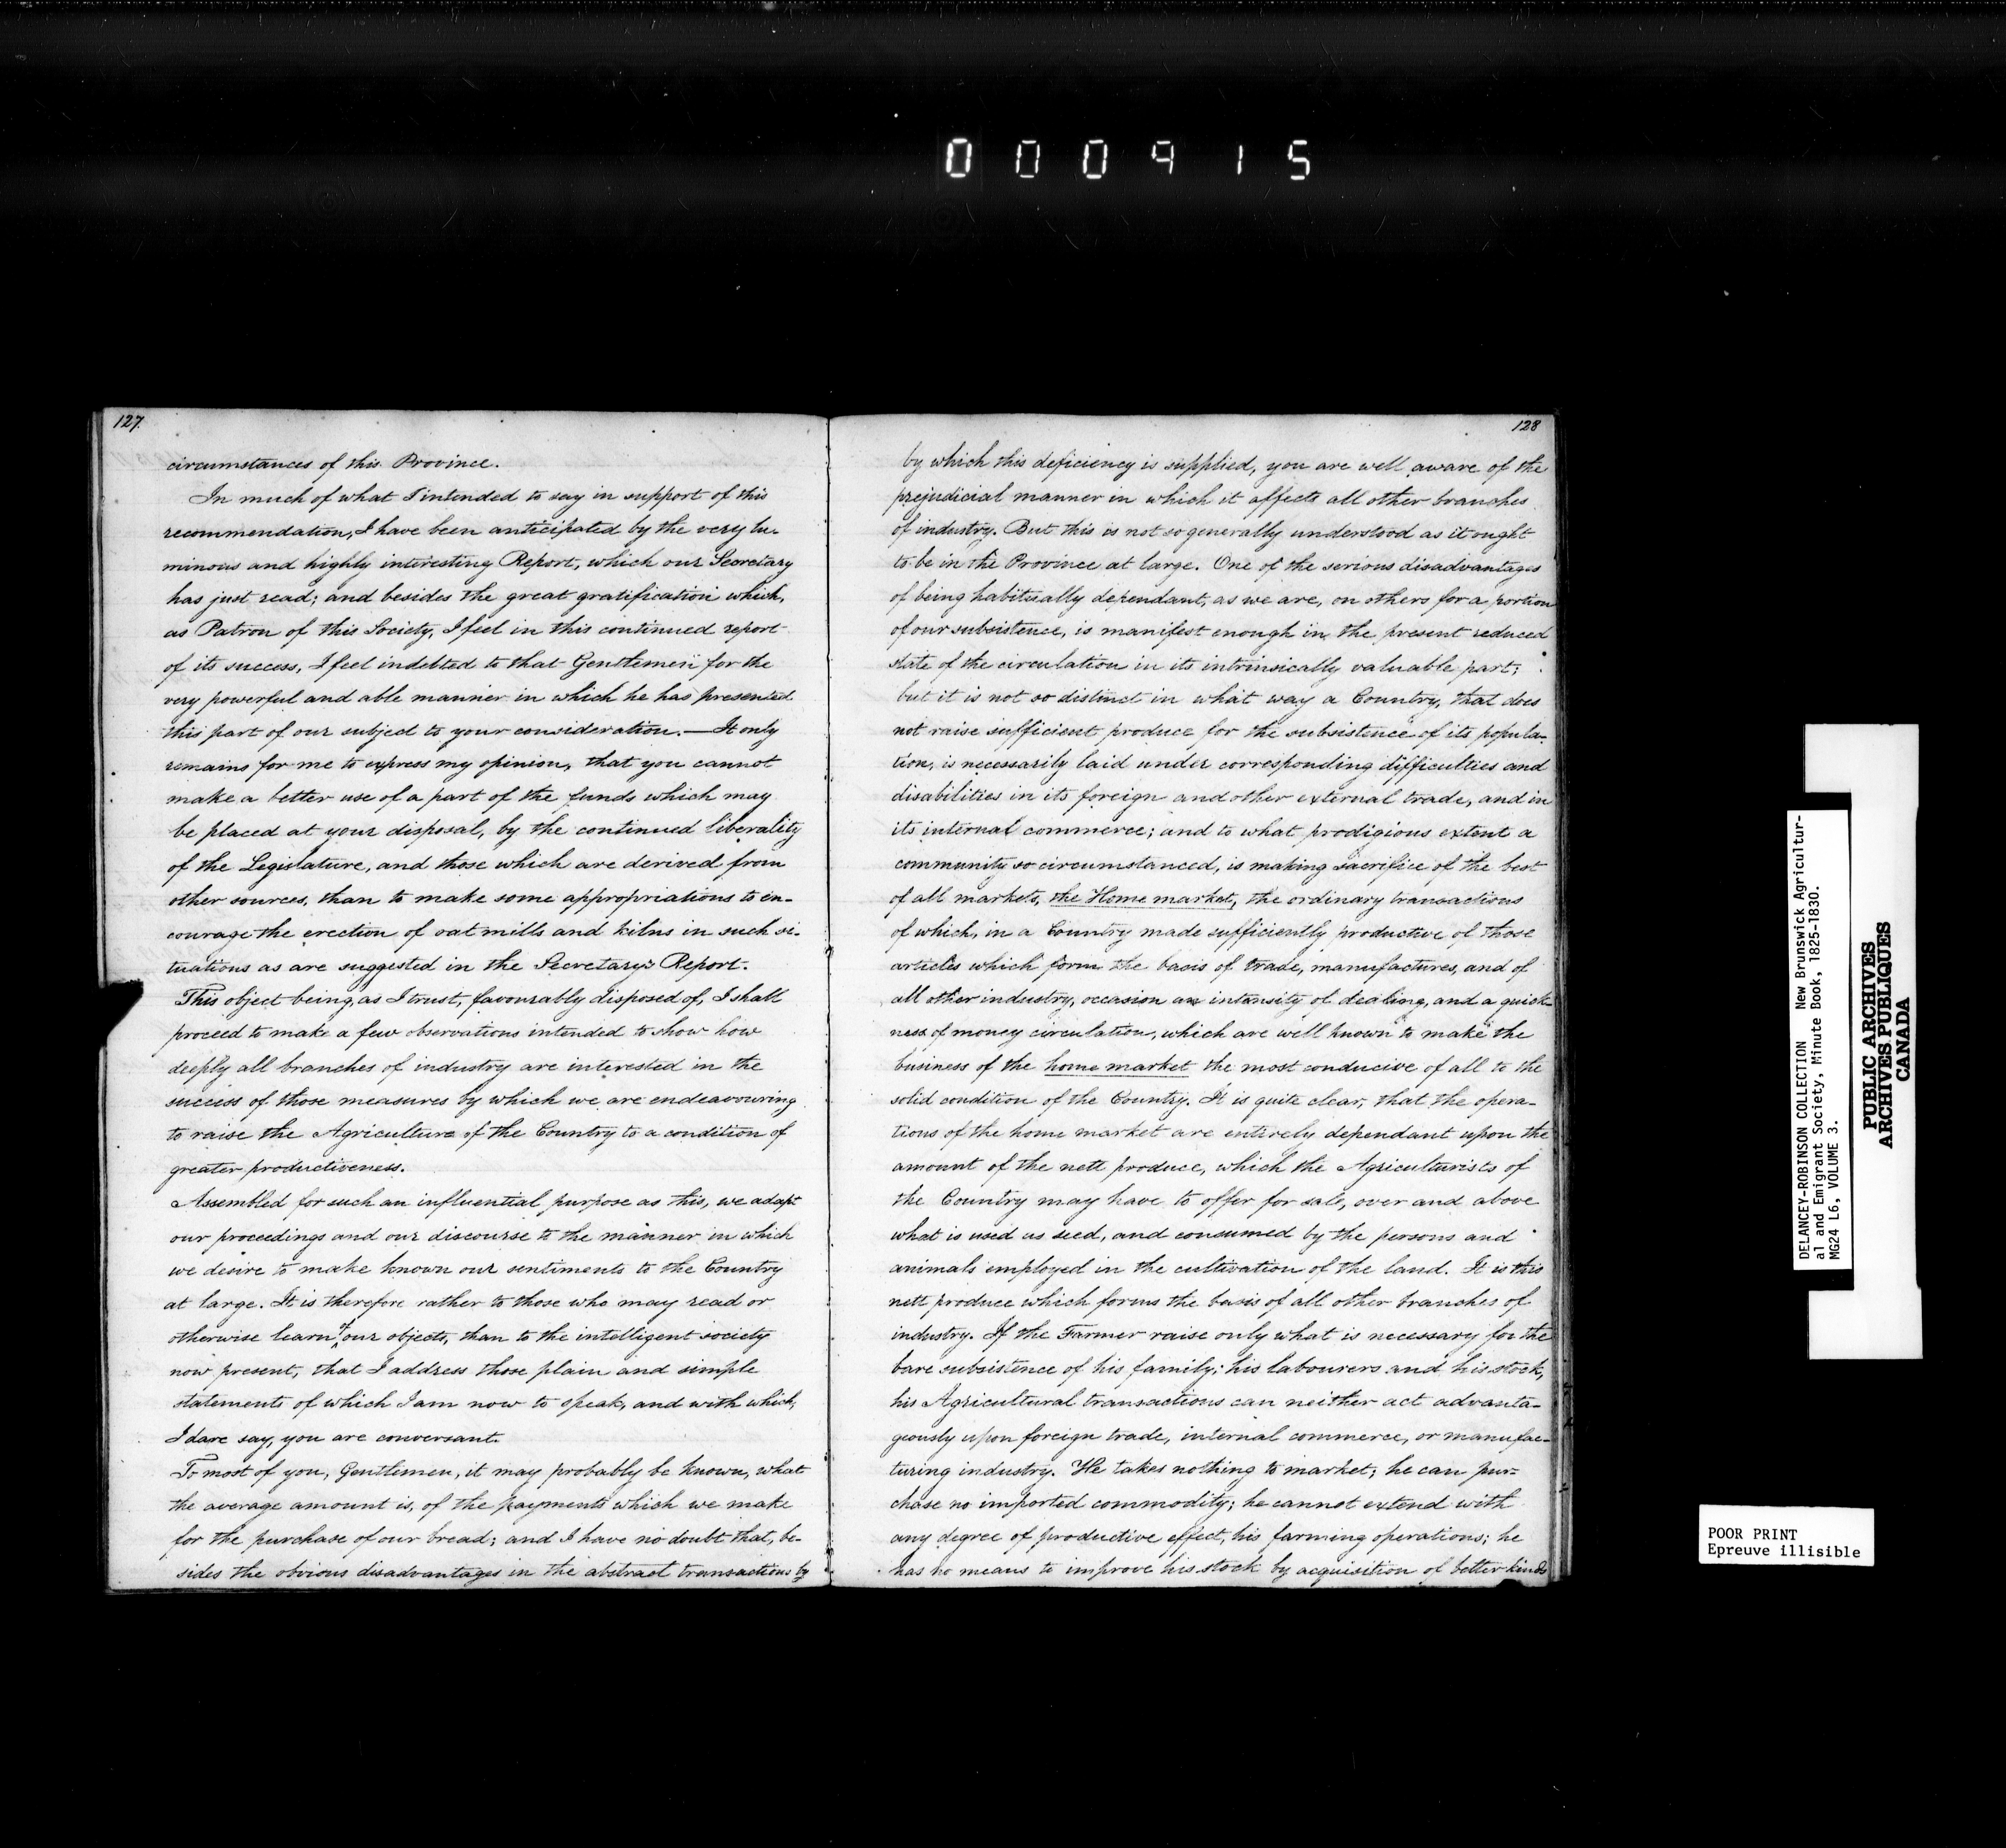 000915
127.
circumstances of this Province.
In much of what I intended to say in support of this
recommendation, I have been anticipated by the very lu-
minous and highly interesting Report, which our Secretary
has just read; and besides the great gratification which,
as Patron of this Society, I feel in this continued report
of its success, I feel indebted to that Gentlemen for the
very powerful and able manner in which he has presented
this part of our subject to your consideration. — It only
remains for me to express my opinion, that you cannot
make a better use of a part of the funds which may
be placed at your disposal, by the continued liberality
of the Legislature, and those which are derived from
other sources, than to make some appropriations to en-
courage the erection of oat mills and kilns in such si-
tuations as are suggested in the Secretary's Report.
This object being, as I trust, favourably disposed of, I shall
proceed to make a few observations intended to show how
deeply all branches of industry are interested in the
success of those measures by which we are endeavouring
to raise the Agriculture of the Country to a condition of
greater productiveness.
Assembled for such an influential purpose as this, we adapt
our proceedings and our discourse to the manner in which
we desire to make known our sentiments to the Country
at large. It is therefore rather to those who may read or
otherwise learn of our objects, than to the intelligent society
now present, that I address those plain and simple
statements of which I am now to speak, and with which,
I dare say, you are conversant.
To most of you, Gentlemen, it may probably be known, what
the average amount is, of the payments which we make
for the purchase of our bread; and I have no doubt that, be-
sides the obvious disadvantages in the abstract transactions by
128
by which this deficiency is supplied, you are well aware of the
prejudicial manner in which it affects all other branches
of industry. But this is not so generally understood as it ought
to be in the Province at large. One of the serious disadvantages
of being habitually dependant, as we are, on others for a portion
of our subsistence, is manifest enough in the present reduced
state of the circulation in its intrinsically valuable part;
but it is not so distinct in what way a Country, that does
not raise sufficient produce for the subsistence of its popula-
tion, is necessarily laid under corresponding difficulties and
disabilities in its foreign and other external trade, and in
its internal commerce; and to what prodigious extent a
community so circumstanced, is making sacrifice of the best
of all markets, the Home market, the ordinary transactions
of which, in a Country made sufficiently productive of those
articles which form the basis of trade, manufactures, and of
all other industry, occasion an intensity of dealing, and a quick-
ness of money circulation, which are well known to make the
business of the home market the most conducive of all to the
solid condition of the Country. It is quite clear, that the opera-
tions of the home market are entirely dependant upon the
amount of the nett produce, which the Agriculturists of
the Country may have to offer for sale, over and above
what is used as seed, and consumed by the persons and
animals employed in the cultivation of the land. It is this
nett produce which forms the basis of all other branches of
industry. If the Farmer raise only what is necessary for the
bare subsistence of his family; his labourers and his stock,
his Agricultural transactions can neither act advanta-
geously upon foreign trade, internal commerce, or manufac-
turing industry. He takes nothing to market; he can pur-
chase no imported commodity; he cannot extend with
any degree of productive effect, his farming operations; he
has no means to improve his stock by acquisition of better kinds
DELANCEY-ROBINSON COLLECTION New Brunswick Agricultur-
al and Emigrant Society, Minute Book, 1825-1830.
MG24 L6, VOLUME 3.
PUBLIC ARCHIVES
ARCHIVES PUBLIQUES
CANADA
POOR PRINT
Epreuve illisible